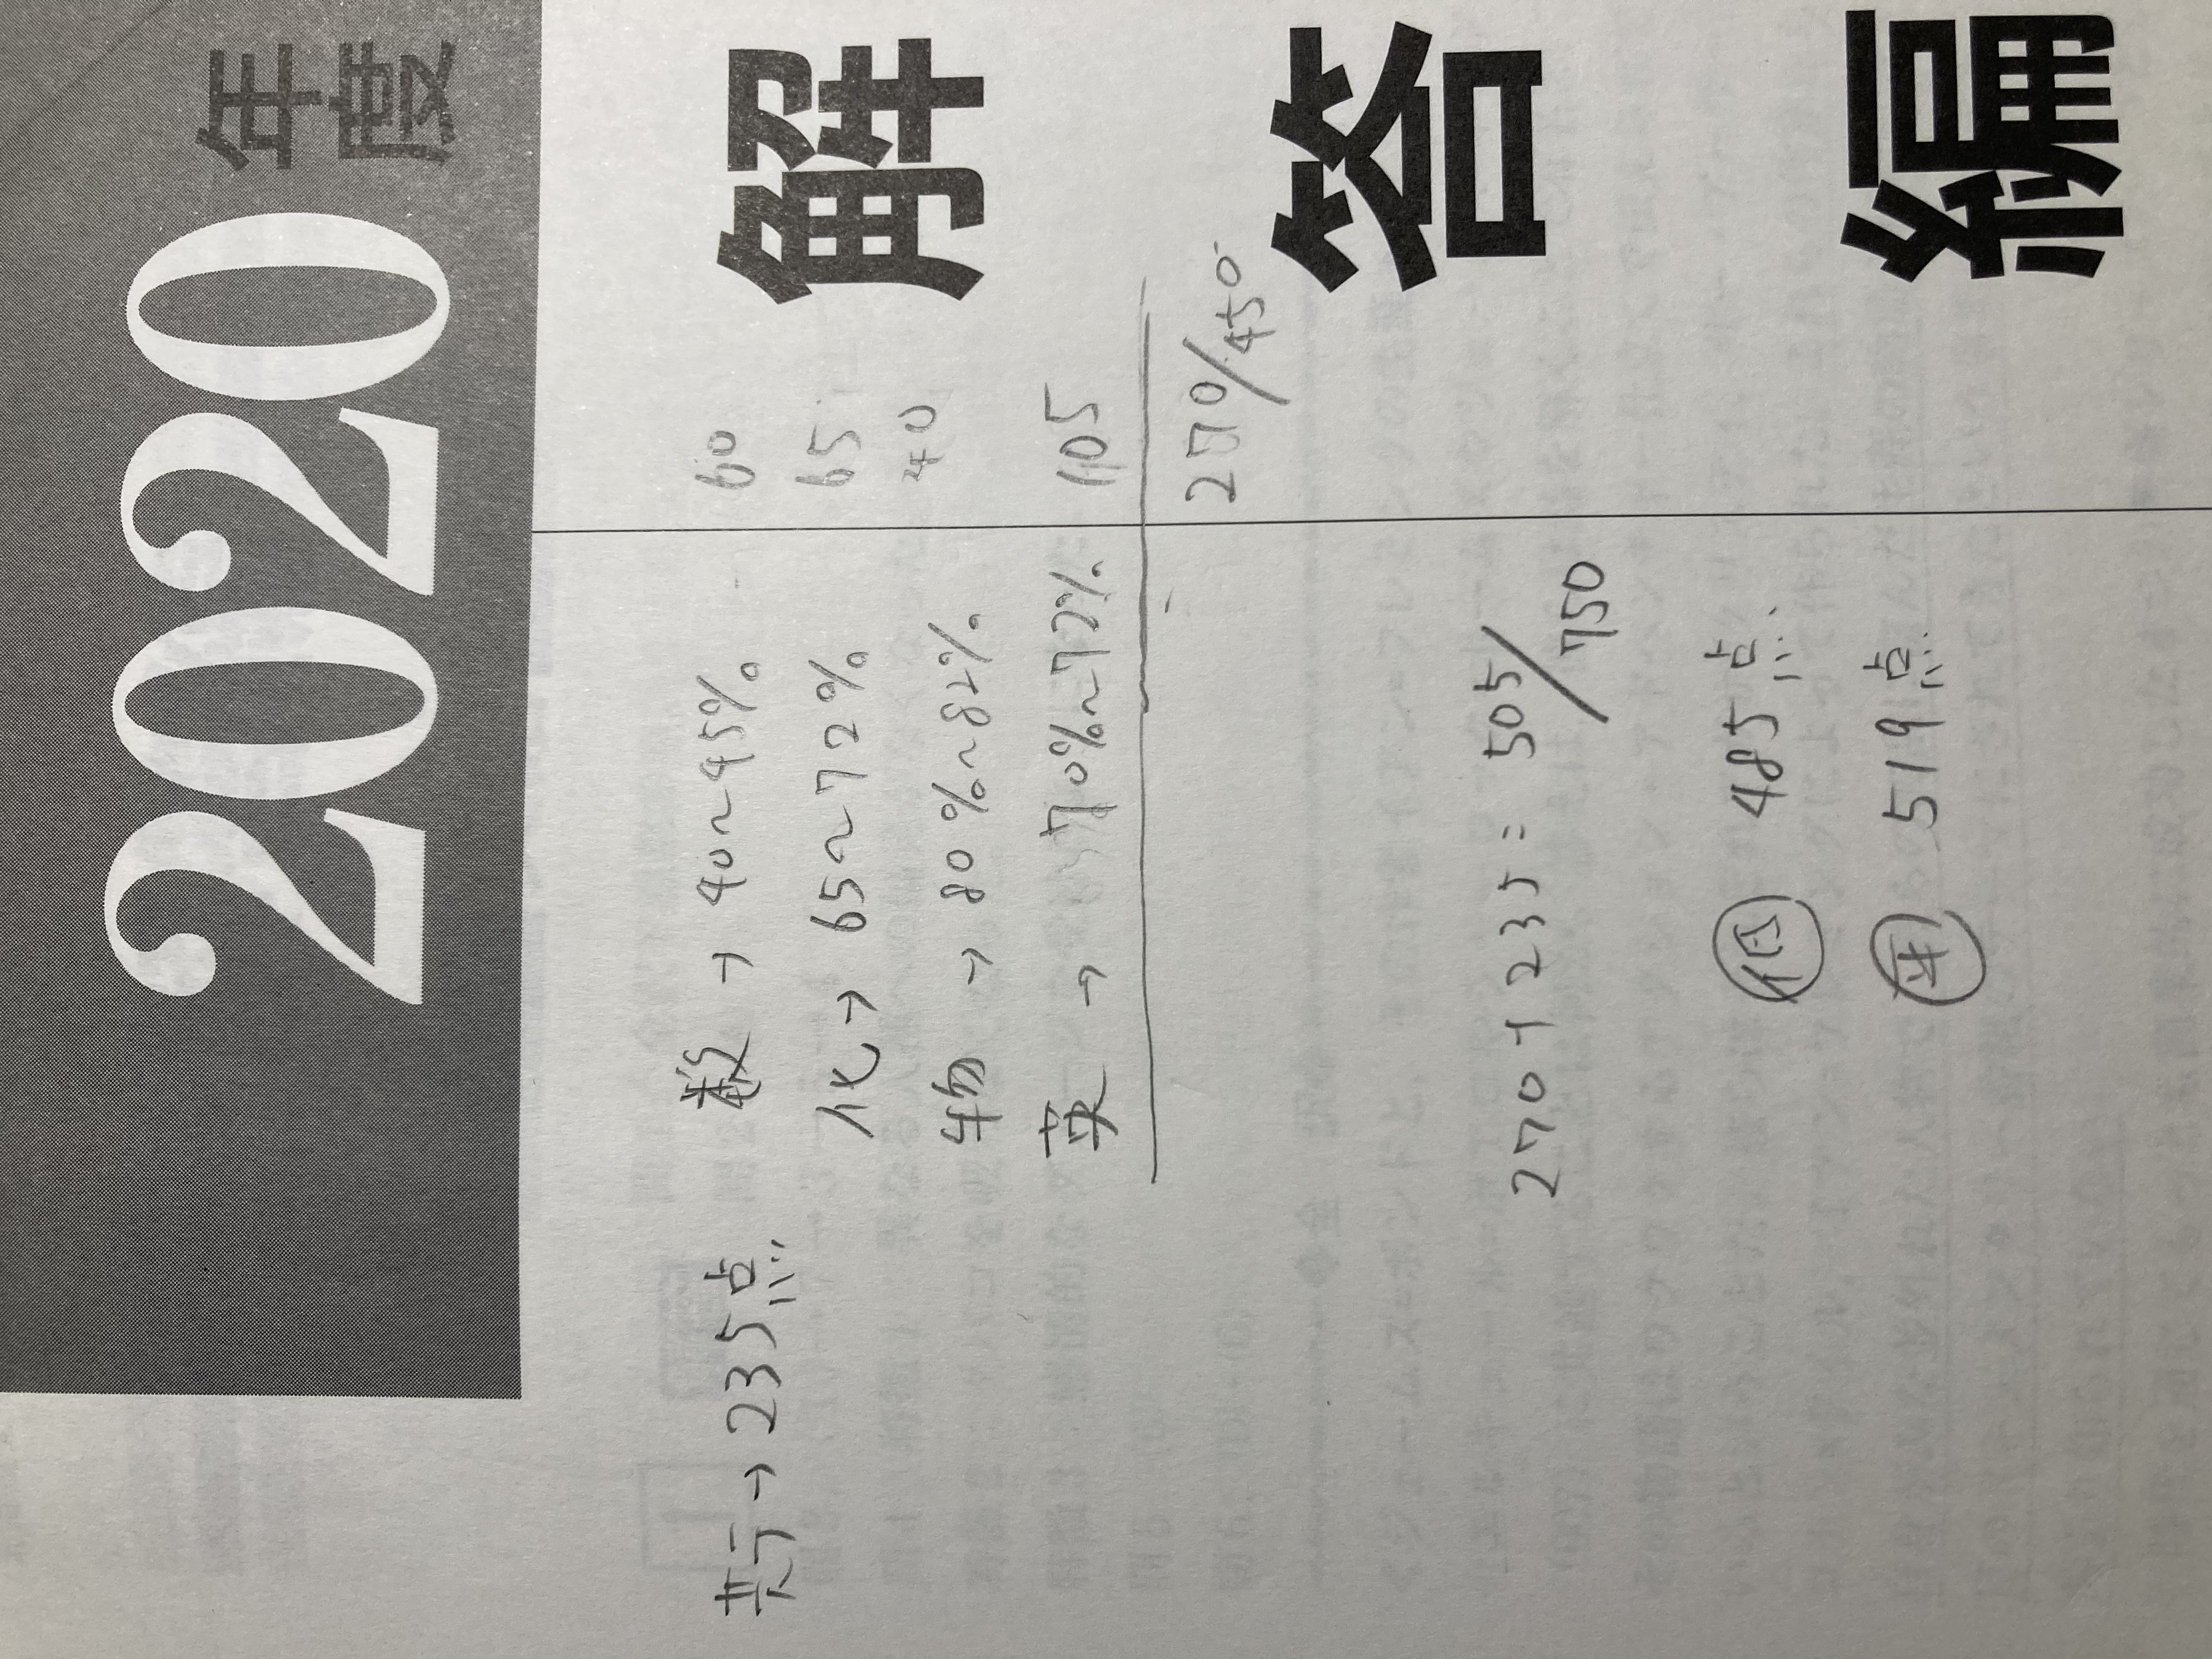 2020年度
解答編
共テ→235点
数→40~45% 60
化→65~72% 65
物→80%~82% 40
英→70%~72% 105
270/450
270+235=505/750
低 485点
519点